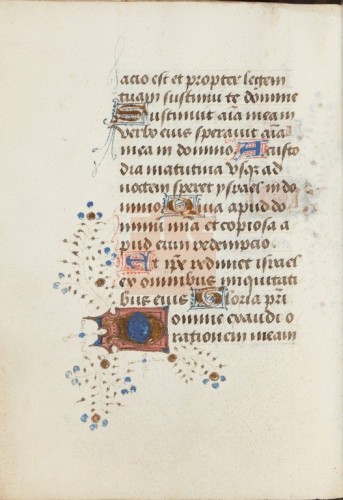 acio est et propter legem
tuam sustinui te domine
Sustinuit aīa mea in
verbo eius speravit aīa
mea in domino A custo
dia matutina usq̄ ad
noctem speret ysrael in do
mino Quia apud do
minū mīa et copiosa a
pud eum redempcio.
Et ip̄e redimet israel
ex omnibus iniquitati
bus eius Gloria pr̄i
Domine exaudi o
rationem meam